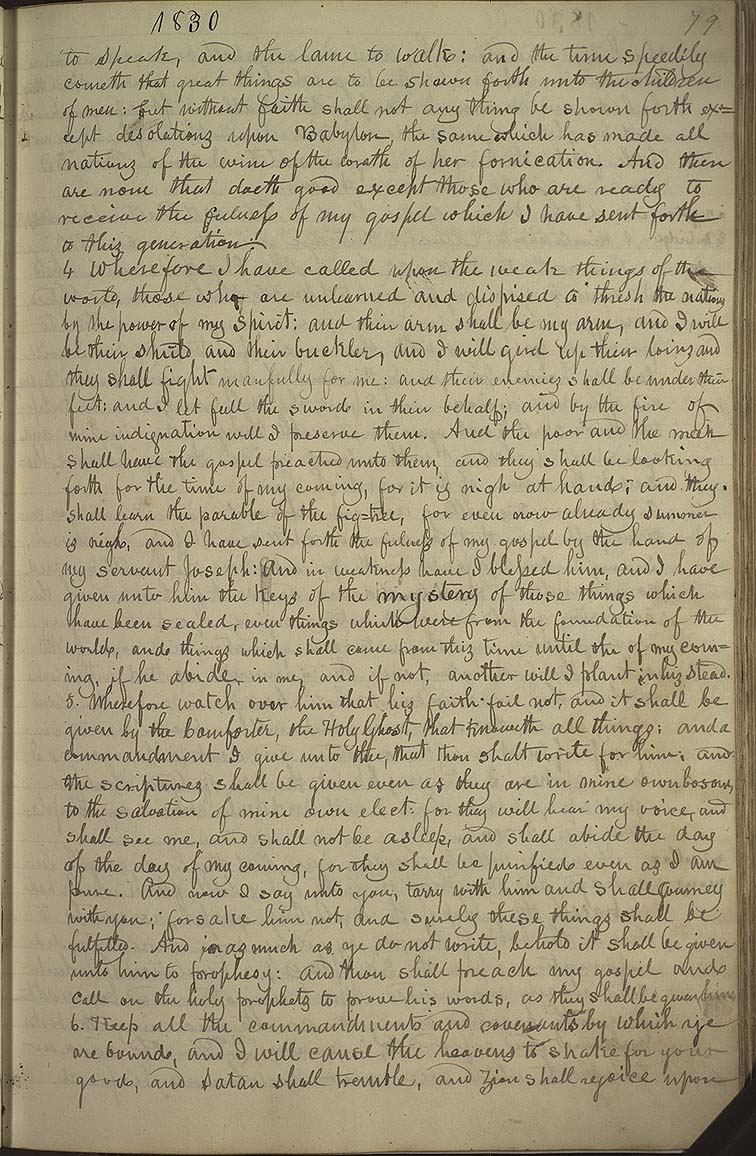 1830
79
to speak, and the lame to walk: and the time speedily
cometh that great things are to be shown forth unto the children
of men: but without faith shall not any thing be shown forth ex=
cept desolations upon Babylon, the same which has made all
nations of the wine of the wrath of her fornication. And there
are none that doeth good except those who are ready to
receive the fulness of my gospel which I have sent forth
to this generation.
4 Wherefore I have called upon the weak things of the
world, those who are unlearned and dispised to thresh the nations
by the power of my Spirit: and their arm shall be my arm, and I will
be their shield and their buckler, and I will gird up their loins and
they shall fight manfully for me: and their enemies shall be under their
feet: and I let fall the sword in their behalf; and by the fire of
mine indignation will I preserve them. And the poor and the meek
shall have the gospel preached unto them, and they shall be looking
forth for the time of my coming, for it is nigh at hand; and they
shall learn the parable of the fig-tree, for even now already summer
is nigh, and I have sent forth the fulness of my gospel by the hand of
my servant Joseph: and in weakness have I blessed him, and I have
given unto him the keys of the mystery of those things which
have been sealed, even things which were from the foundation of the
world, and things which shall come from this time until the of my com=
ing, if he abide in me, and if not, another will I plant in his stead.
5. Wherefore watch over him that his faith fail not, and it shall be
given by the Comforter, the Holy Ghost, that knoweth all things: and a
commandment I give unto thee, that thou shalt write for him; and
the scriptures shall be given even as they are in mine own bosom,
to the salvation of mine own elect: for they will hear my voice, and
shall see me, and shall not be asleep, and shall abide the day
of the day of my coming, for they shall be purified even as I am
pure. And now I say unto you, tarry with him and shall journey
with you; forsake him not, and surely these things shall be
fulfilled. And inasmuch as ye do not write, behold it shall be given
unto him to prophesy: and thou shall preach my gospel and
call on the holy prophets to prove his words, as they shall be given him
6. Keep all the commandments and covenants by which ye
are bound, and I will cause the heavens to shake for your
good, and Satan shall tremble, and Zion shall rejoice upon